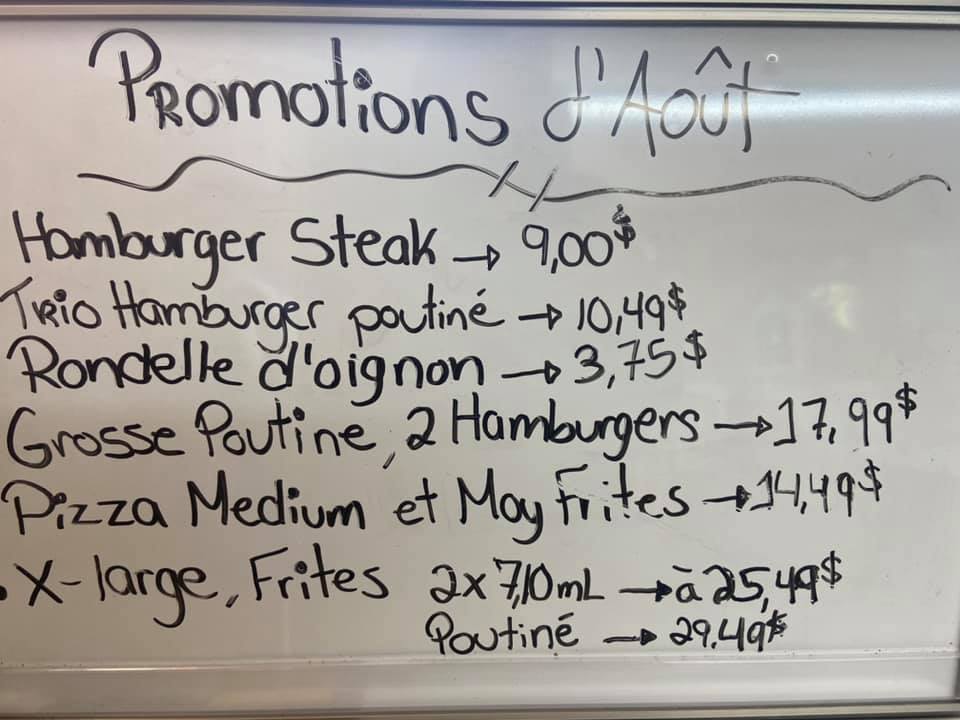 Promotions d'Août
Hamburger Steak → 9,00$
Trio Hamburger poutiné → 10,49$
Rondelle d'oignon → 3,75$
Grosse Poutine, 2 Hamburgers → 17,99$
Pizza Medium et Moy Frites → 14,49$
• X-large, Frites 2x 710mL → à 25,49$
Poutiné → 29,49$